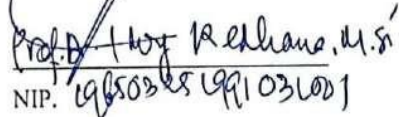 Prof. Dr. I Wy Redhana, M.Si
NIP. 196503251991031001